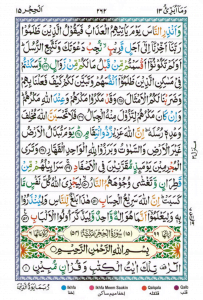 وَمَآ اُبَرِّئُ ١٣ ٢٩٤ اَلْحِجْر ١٥
وَاَنْذِرِ النَّاسَ يَوْمَ يَاْتِيْهِمُ الْعَذَابُ فَيَقُوْلُ الَّذِيْنَ ظَلَمُوْا
رَبَّنَآ اَخِّرْنَآ اِلٰٓى اَجَلٍ قَرِيْبٍ نُّجِبْ دَعْوَتَكَ وَنَتَّبِعِ الرُّسُلَ
اَوَلَمْ تَكُوْنُوْٓا اَقْسَمْتُمْ مِّنْ قَبْلُ مَا لَكُمْ مِّنْ زَوَالٍ وَّسَكَنْتُمْ
فِيْ مَسٰكِنِ الَّذِيْنَ ظَلَمُوْٓا اَنْفُسَهُمْ وَتَبَيَّنَ لَكُمْ كَيْفَ فَعَلْنَا بِهِمْ
وَضَرَبْنَا لَكُمُ الْاَمْثَالَ وَقَدْ مَكَرُوْا مَكْرَهُمْ وَعِنْدَ اللّٰهِ مَكْرُهُمْ
وَاِنْ كَانَ مَكْرُهُمْ لِتَزُوْلَ مِنْهُ الْجِبَالُ فَلَا تَحْسَبَنَّ اللّٰهَ مُخْلِفَ
وَعْدِهٖ رُسُلَهٗ اِنَّ اللّٰهَ عَزِيْزٌ ذُو انْتِقَامٍ يَوْمَ تُبَدَّلُ الْاَرْضُ
غَيْرَ الْاَرْضِ وَالسَّمٰوٰتُ وَبَرَزُوْا لِلّٰهِ الْوَاحِدِ الْقَهَّارِ وَتَرَى
الْمُجْرِمِيْنَ يَوْمَئِذٍ مُّقَرَّنِيْنَ فِى الْاَصْفَادِ سَرَابِيْلُهُمْ مِّنْ
قَطِرَانٍ وَّتَغْشٰى وُجُوْهَهُمُ النَّارُ لِيَجْزِيَ اللّٰهُ كُلَّ نَفْسٍ
مَّا كَسَبَتْ اِنَّ اللّٰهَ سَرِيْعُ الْحِسَابِ هٰذَا بَلٰغٌ لِّلنَّاسِ وَلِيُنْذَرُوْا
بِهٖ وَلِيَعْلَمُوْٓا اَنَّمَا هُوَ اِلٰهٌ وَّاحِدٌ وَّلِيَذَّكَّرَ اُولُوا الْاَلْبَابِ
بِسْمِ اللّٰهِ الرَّحْمٰنِ الرَّحِيْمِ
الٓرٰ تِلْكَ اٰيٰتُ الْكِتٰبِ وَقُرْاٰنٍ مُّبِيْنٍ
Ikhfa Ikhfa Meem Saakin Qalqala